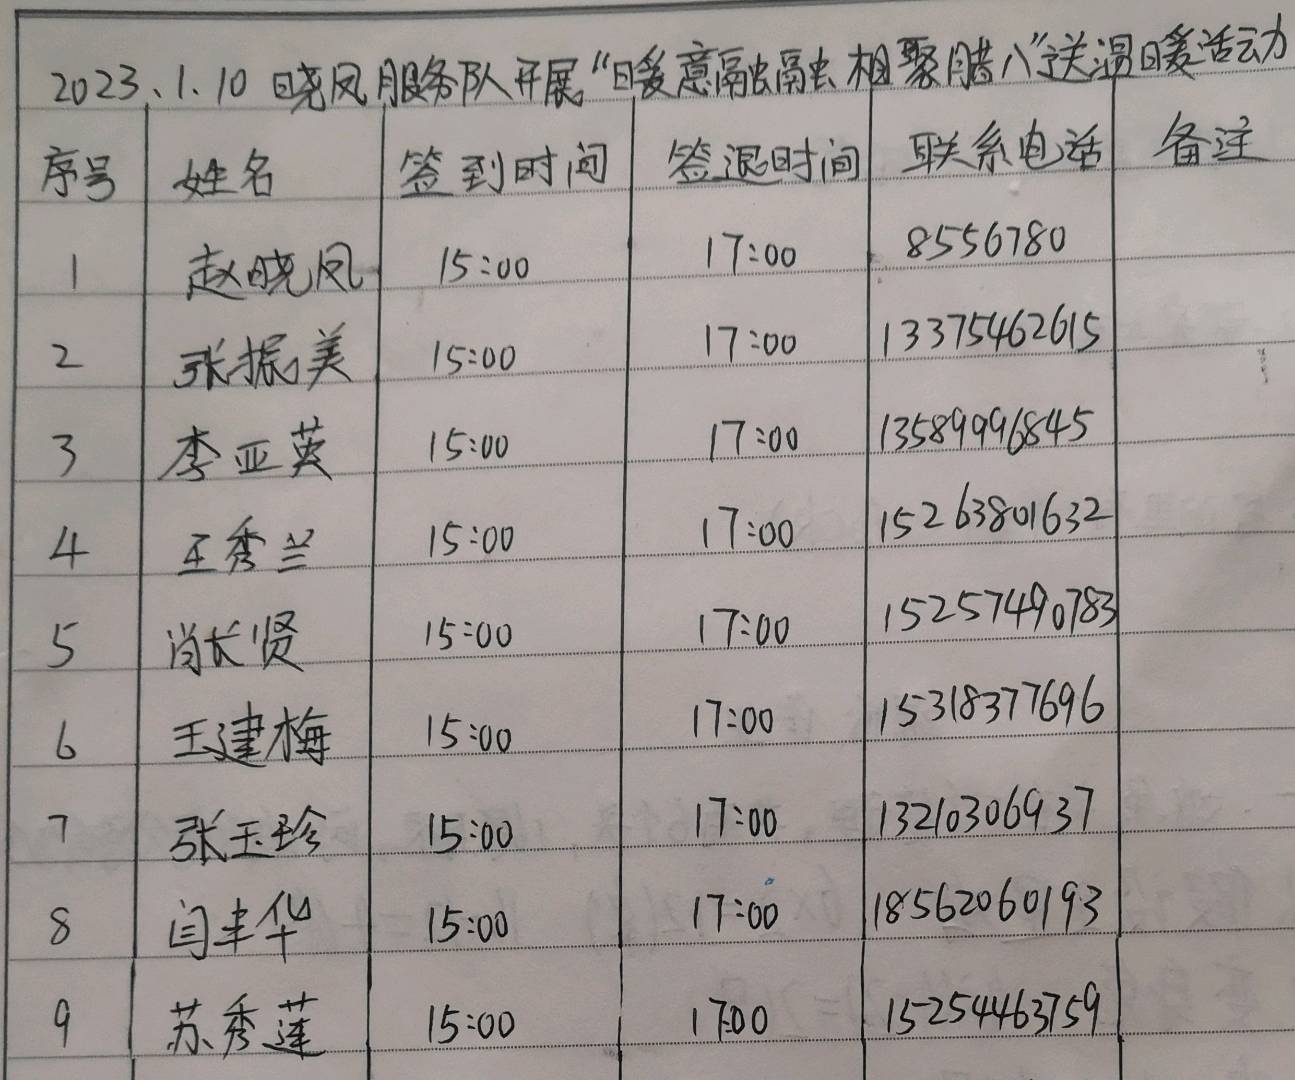 2023.1.10 晓凤服务队开展“暖意融融 相聚腊八”送温暖活动
序号 姓名 签到时间 签退时间 联系电话 备注
1 赵晓凤 15:00 17:00 8556780
2 张振美 15:00 17:00 13375462615
3 李亚英 15:00 17:00 13589996845
4 王秀兰 15:00 17:00 15263801632
5 肖长贤 15:00 17:00 15257490783
6 王建梅 15:00 17:00 15318377696
7 张玉珍 15:00 17:00 13210306937
8 闫丰华 15:00 17:00 18562060193
9 苏秀莲 15:00 17:00 15254463759